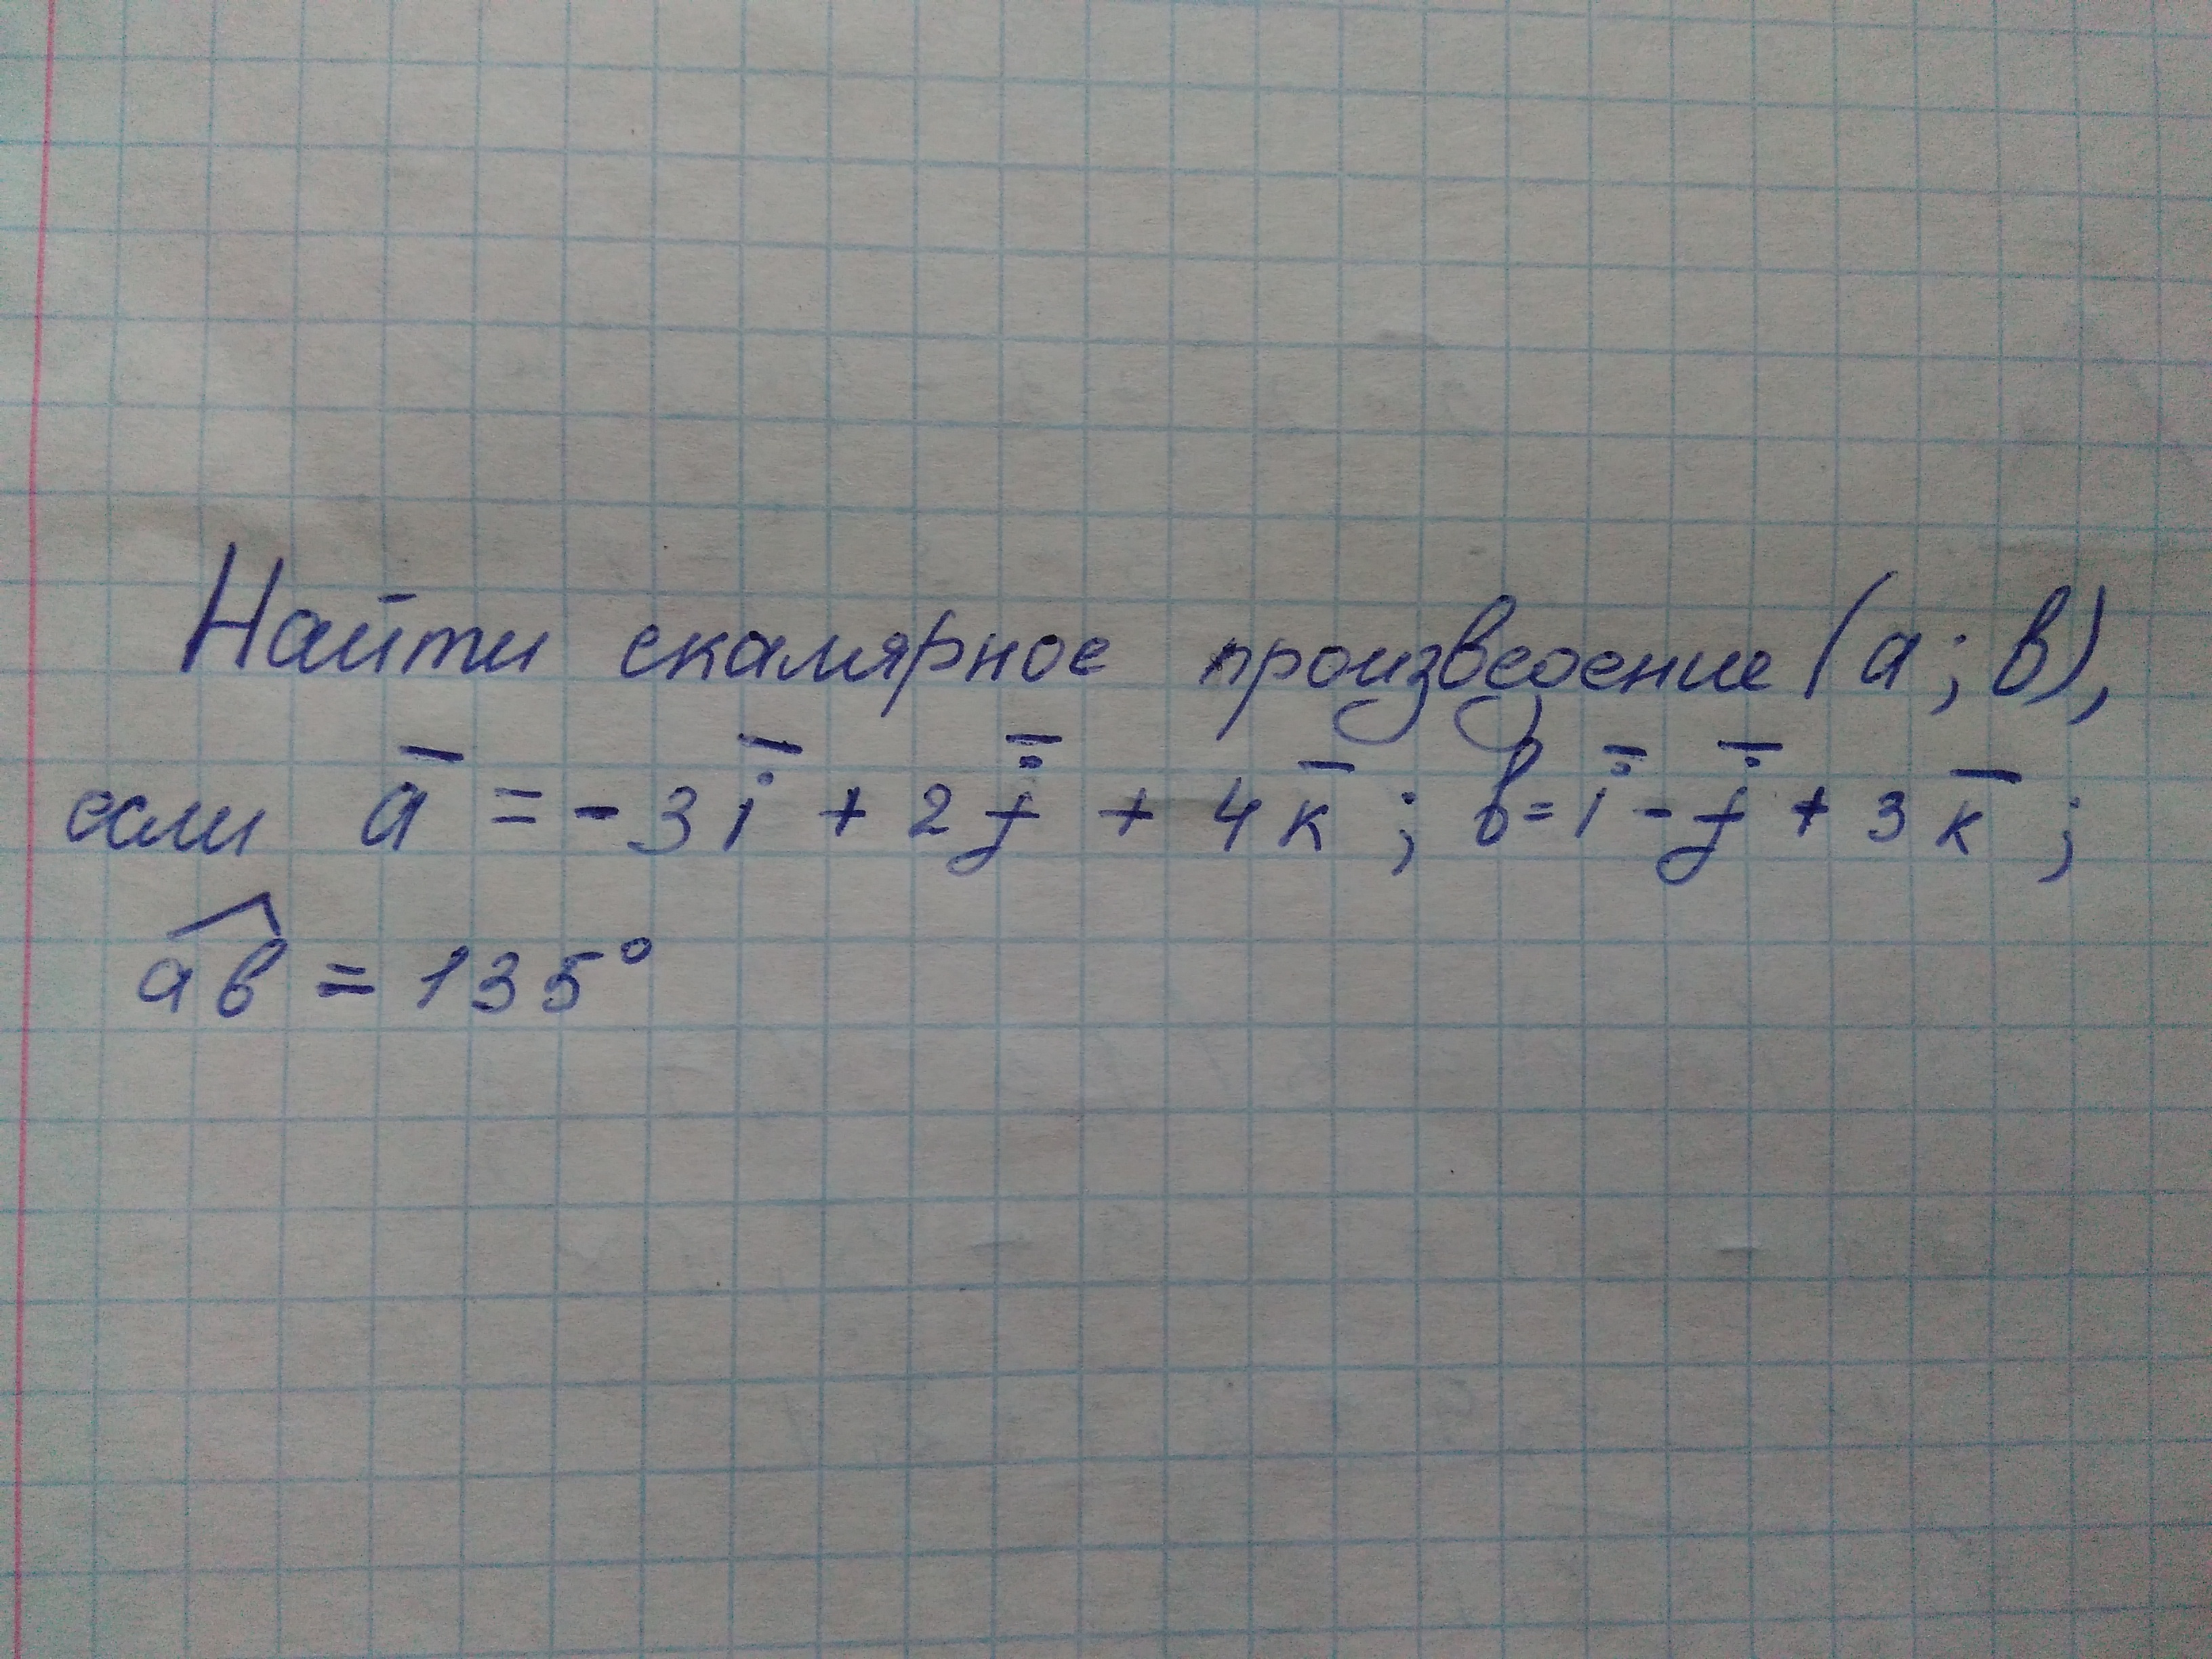 Найти скалярное произведение (a; b),
если a̅ = - 3 i̅ + 2 j̅ + 4 k̅ ; b = i̅ - j̅ + 3 k̅ ;
a͡b = 135°